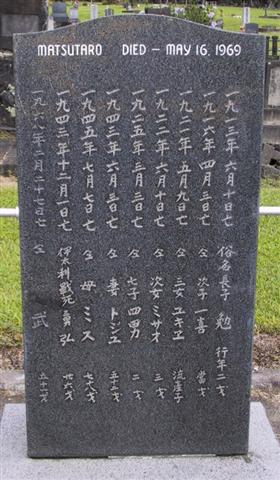 MATSUTARO DIED – MAY 16, 1969
一九一三年六月十日七 俗名長子 勉 行年二才
一九一六年四月三日七 仝 次子 一喜 當才
一九二一年五月九日七 仝 三女 ユキヱ 流産子
一九二二年六月十日七 仝 次女 ミサオ 三才
一九二五年三月三日七 仝 七子 四男 二才
一九四三年六月三日七 仝 妻 トジユ 五十三才
一九四五年七月七日七 仝 母 ミス 七十八才
一九四三年十二月一日七 伊太利戰死 勇弘 廿六才
一九六八年二月二十七日七 仝 武 五十一才